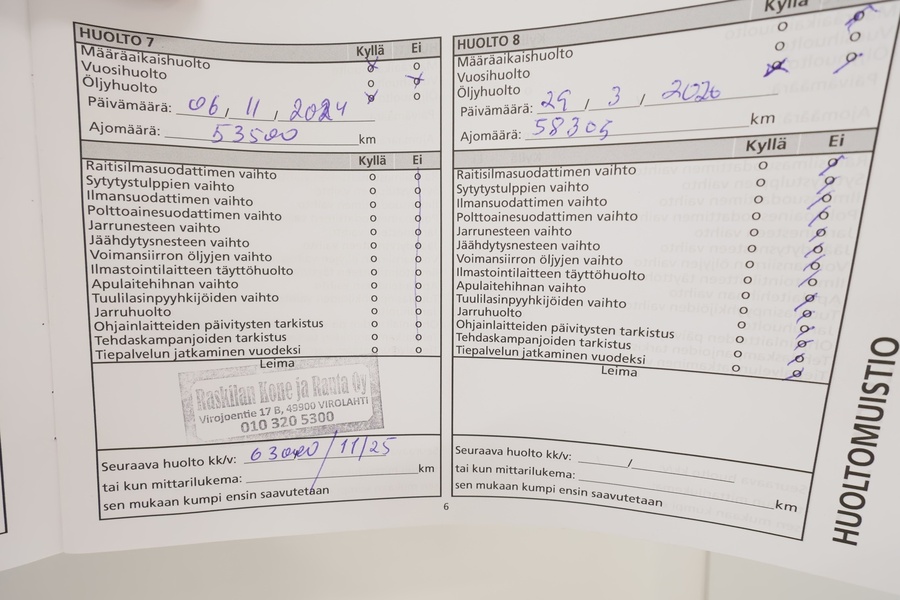 HUOLTO 7
Kyllä Ei
Määräaikaishuolto
Vuosihuolto
Öljyhuolto
Päivämäärä: 06, 11, 2024
Ajomäärä: 53500 km
Kyllä Ei
Raitisilmasuodattimen vaihto
Sytytystulppien vaihto
Ilmansuodattimen vaihto
Polttoainesuodattimen vaihto
Jarrunesteen vaihto
Jäähdytysnesteen vaihto
Voimansiirron öljyjen vaihto
Ilmastointilaitteen täyttöhuolto
Apulaitehihnan vaihto
Tuulilasinpyyhkijöiden vaihto
Jarruhuolto
Ohjainlaitteiden päivitysten tarkistus
Tehdaskampanjoiden tarkistus
Tiepalvelun jatkaminen vuodeksi
Leima
Raskilan Kone ja Rauta Oy
Virojoentie 17 B, 49900 VIROLAHTI
010 320 5300
Seuraava huolto kk/v: 63000 / 11/25
tai kun mittarilukema: km
sen mukaan kumpi ensin saavutetaan
HUOLTO 8
Kyllä
Määräaikaishuolto
Vuosihuolto
Öljyhuolto
Päivämäärä: 29 / 3 / 2026
Ajomäärä: 58305 km
Kyllä Ei
Raitisilmasuodattimen vaihto
Sytytystulppien vaihto
Ilmansuodattimen vaihto
Polttoainesuodattimen vaihto
Jarrunesteen vaihto
Jäähdytysnesteen vaihto
Voimansiirron öljyjen vaihto
Ilmastointilaitteen täyttöhuolto
Apulaitehihnan vaihto
Tuulilasinpyyhkijöiden vaihto
Jarruhuolto
Ohjainlaitteiden päivitysten tarkistus
Tehdaskampanjoiden tarkistus
Tiepalvelun jatkaminen vuodeksi
Leima
Seuraava huolto kk/v: /
tai kun mittarilukema: km
sen mukaan kumpi ensin saavutetaan
6
HUOLTOMUISTIO